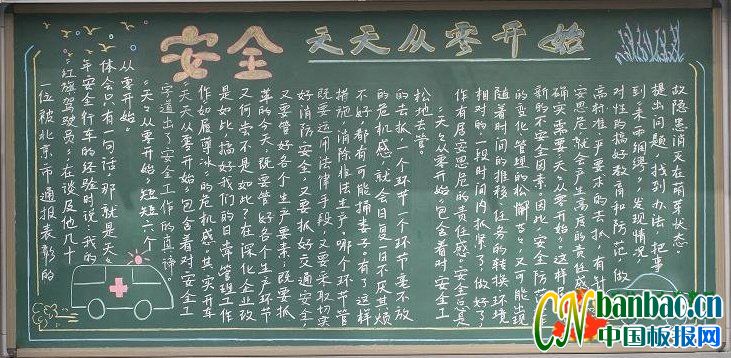 安全 天天从零开始
一位被北京市通报表彰的
红旗驾驶员,在谈及他几十
年安全行车的经验时说:我的
体会只有一句话,那就是天天
从零开始。
“天天从零开始”短短六个
字道出了安全工作的真谛。
“天天从零开始”包含着对安全工
作如履薄冰”的危机感。其实开车
是如此,搞好我们的日常管理工作
又何尝不是如此?在深化企业改
革的今天,既要管好各个生产环节
又要管好各个生产要素;既要抓
好消防安全,又要抓好交通安全;
既要运用法律手段,又要采取切实
措施,消除非法生产。哪个环节管
不好都有可能捅娄子。有了这样
的危机感,就会日复一日不厌其烦
的去抓一个环节一个环节毫不放
松地去管。
“天天从零开始”包含着对安全工
作有居安思危的责任感。安全总是
相对的,一段时间内抓紧了,做好了,
随着时间的推移、任务的转换、环境
的变化、管理的松懈等,又可能出现
新的不安全因素。因此,安全防
确实需要天天从零开始。这样居
安思危,就会产生高度的责任感
高标准、严要求的去抓,有
对性的搞好教育和防范,做
到“未雨绸缪”,发现情况
提出问题,找到办法,把事
故隐患消灭在萌芽状态。
CN banbao.cn
中国板报网